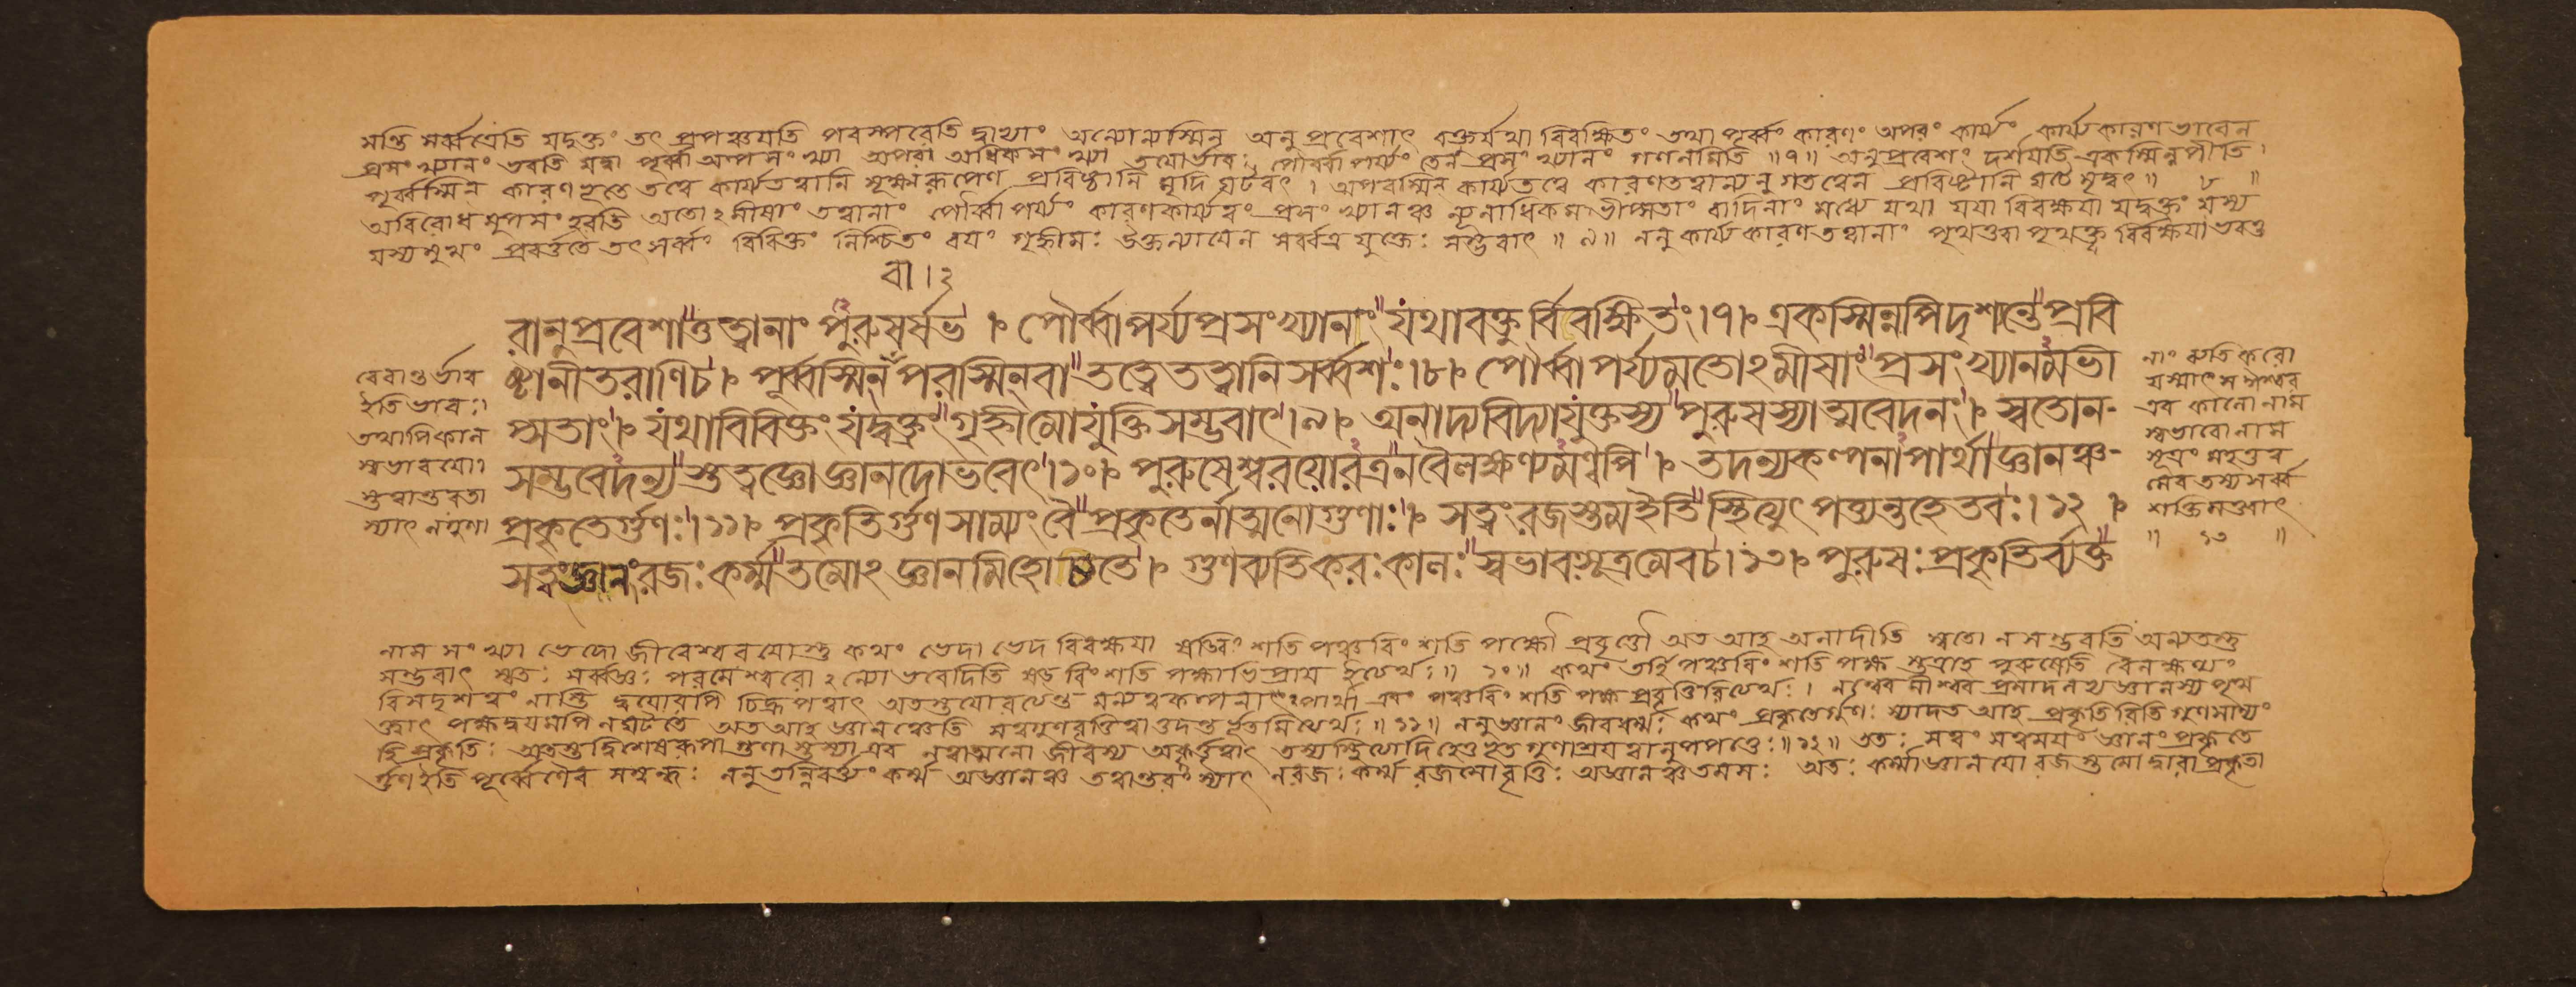 সন্তি সর্ব্বত্রেতি যদুক্তং তৎ প্রপঞ্চযতি পরস্পরেতি দ্বাভ্যাং অন্যোন্যস্মিন্ অনুপ্রবেশাৎ বক্তুর্যথা বিবক্ষিতং তথা পূর্ব্বং কারণং অপরং কার্য্যং কার্য্যকারণভাবেন
প্রসংখ্যানং ভবতি যদ্বা পূর্ব্বা অল্পসংখ্যা অপরা অধিকসংখ্যা তযোর্ভাবঃ পৌর্ব্বাপর্য্যং তেন প্রসংখ্যানং গণনমিতি ॥৭॥ অনুপ্রবেশং দর্শযতি একস্মিন্নপীতি।
পূর্ব্বস্মিন্ কারণভূতে তত্বে কার্য্যতত্বানি সূক্ষ্মরূপেণ প্রবিষ্টানি মৃদি ঘটবৎ। অপরস্মিন্ কার্য্যতত্বে কারণতত্বান্যনুগতত্বেন প্রবিষ্টানি ঘটে মৃদ্বৎ॥ ৮ ॥
অবিরোধমুপসংহরতি অতোঽমীষাং তত্বানাং পৌর্ব্বাপর্য্যং কারণকার্য্যত্বং প্রসংখ্যানঞ্চ ন্যূনাধিকমভীপ্সতাং বাদিনাং মধ্যে যথা যযা বিবক্ষযা যদ্বক্তুং যস্য
যস্য মুখং প্রবর্ত্ততে তৎ সর্ব্বং বিবিক্তং নিশ্চিতং বযং গৃহ্নীমঃ উক্তন্যাযেন সর্ব্বত্র যুক্তেঃ সম্ভবাৎ ॥৯॥ ননু কার্য্যকারণতত্বানাং পৃথক্ত্বাপৃথক্ত্ববিবক্ষযা ভবতু
বা।২
রানুপ্রবেশাত্তত্ত্বানাং পুরুষর্ষভ । পৌর্ব্বাপর্য্যপ্রসংখ্যানং যথাবক্তুর্বিবক্ষিতং।৭। একস্মিন্নপিদৃশ্যন্তেপ্রবি
ষ্টানীতরাণিচ। পূর্ব্বস্মিন্ পরস্মিন্ বা তত্ত্বে তত্ত্বানিসর্ব্বশঃ।৮। পৌর্ব্বাপর্য্যমতোঽমীষাং প্রসংখ্যানমভী
প্সতাং। যথাবিবিক্তং যদ্বক্ত্রং গৃহ্নীমোযুক্তিসম্ভবাৎ।৯। অনাদ্যবিদ্যাযুক্তস্য পুরুষস্যাত্মবেদনং। স্বতোন-
সম্ভবেদন্য স্তত্ত্বজ্ঞোজ্ঞানদোভবেৎ।১০। পুরুষেশ্বরয়োরত্র নবৈলক্ষণ্যমণ্বপি । তদন্যকল্পনাপার্থা জ্ঞানঞ্চ-
প্রকৃতের্গুণঃ।১১। প্রকৃতির্গুণসাম্যং বৈ প্রকৃতের্নাত্মনোগুণাঃ। সত্ত্বং রজস্তমইতি স্থিত্যুৎপত্ত্যন্তহেতবঃ।১২ ।
সত্ত্বংজ্ঞানংরজঃকর্ম্ম তমোঽজ্ঞানমিহোচ্যতে। গুণব্যতিকরঃকালঃ স্বভাবঃসূত্রমেবচ।১৩। পুরুষঃপ্রকৃতির্ব্যক্ত
বেবান্তর্ভাব
ইতিভাবঃ।
তথাপিকাল
স্বভাবযো
স্তত্বান্তরতা
স্যাৎ নগুণা
নাং ব্যতিকরো
যস্মাৎ স ঈশ্বর
এব কালোনাম
স্বভাবোনাম
সূত্রং মহত্তত্ব
মেব তস্য সর্ব্ব
শক্তিমত্বাৎ
॥ ১৩ ॥
নাম সংখ্যাভেদো জীবেশ্বরযোস্তু কথং ভেদাভেদবিবক্ষযা ষড়্বিংশতি পঞ্চবিংশতি পক্ষৌ প্রবৃত্তৌ অত আহ অনাদীতি স্বতো ন সম্ভবতি অন্যতস্তু
সম্ভবাৎ স্বতঃ সর্ব্বজ্ঞঃ পরমেশ্বরোঽন্যো ভবেদিতি ষড়্বিংশতি পক্ষাভিপ্রায ইত্যর্থঃ॥ ১০॥ কথং তর্হি পঞ্চবিংশতি পক্ষ স্তত্রাহ পুরুষেতি বৈলক্ষণ্যং
বিসদৃশত্বং নাস্তি দ্বযোরপি চিদ্রূপত্বাৎ অতস্তযোরত্যন্তমন্যত্বকল্পনা অপার্থা এবং পঞ্চবিংশতি পক্ষপ্রবৃত্তিরিত্যর্থঃ। নন্বেবমীশ্বরপ্রসাদলভ্যজ্ঞানস্য পৃথ
ক্ত্বাৎ পক্ষদ্বযমপি ন ঘটতে অত আহ জ্ঞানঞ্চেতি সত্বগুণবৃত্তিত্বাত্তদন্তর্ভূতমিত্যর্থঃ॥১১॥ ননু জ্ঞানং জীবধর্ম্মঃ কথং প্রকৃতের্গুণঃ স্যাদত আহ প্রকৃতিরিতি গুণসাম্যং
হি প্রকৃতিঃ অতস্তদ্বিশেষরূপা গুণাস্তস্যা এব নত্বাত্মনো জীবস্য অকর্ত্তৃত্বাৎ তস্য স্থিত্যাদিহেতুভূত গুণাশ্রযত্বানুপপত্তেঃ॥১২॥ ততঃ সত্বং সত্বমযং জ্ঞানং প্রকৃতে
র্গুণ ইতি পূর্ব্বেণৈব সম্বন্ধঃ ননু তন্নিবর্ত্ত্যং কর্ম্ম অজ্ঞানঞ্চ তত্বান্তরং স্যাৎ ন রজঃ কর্ম্ম রজসো বৃত্তিঃ অজ্ঞানঞ্চ তমসঃ অতঃ কর্ম্মাজ্ঞানযো রজস্তমোদ্বারা প্রকৃতা